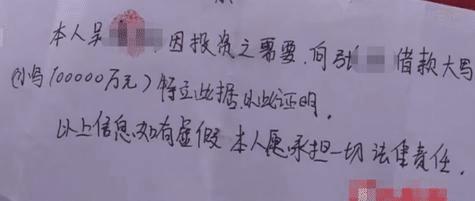 本人吴 因投资之需要，向张 借款大写
（小写100000万元）特立此据，以此证明。
以上信息如有虚假 本人愿承担一切法律责任。